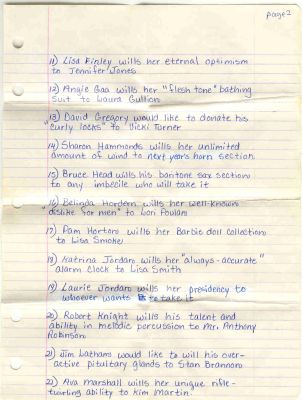 page 2
11) Lisa Finley wills her eternal optimism
to Jennifer Jones
12) Angie Gaa wills her "flesh tone" bathing
suit to Laura Gullion
"13) David Gregory would like to donate his
curly locks" to Vicki Turner
14) Sharon Hammonds wills her unlimited
amount of wind to next years horn section
15) Bruce Head wills his baritone sax section
to any imbecile who will take it
"16) Belinda Hordern wills her well-known
dislike for men" to Lori Poulan
17) Pam Hortons wills her Barbie doll collection
to Lisa Smoke
18) Katrina Jordan wills her "always-accurate"
alarm clock to Lisa Smith
19) Laurie Jordan wills her presidency to
whoever wants to take it
20) Robert Knight wills his talent and
ability in melodic percussion to Mr. Anthony
Robinson
21) Jim Lathams would like to will his over-
active pituitary glands to Stan Brannon
22) Ava Marshall wills her unique rifle-
twirling ability to Kim Martin.